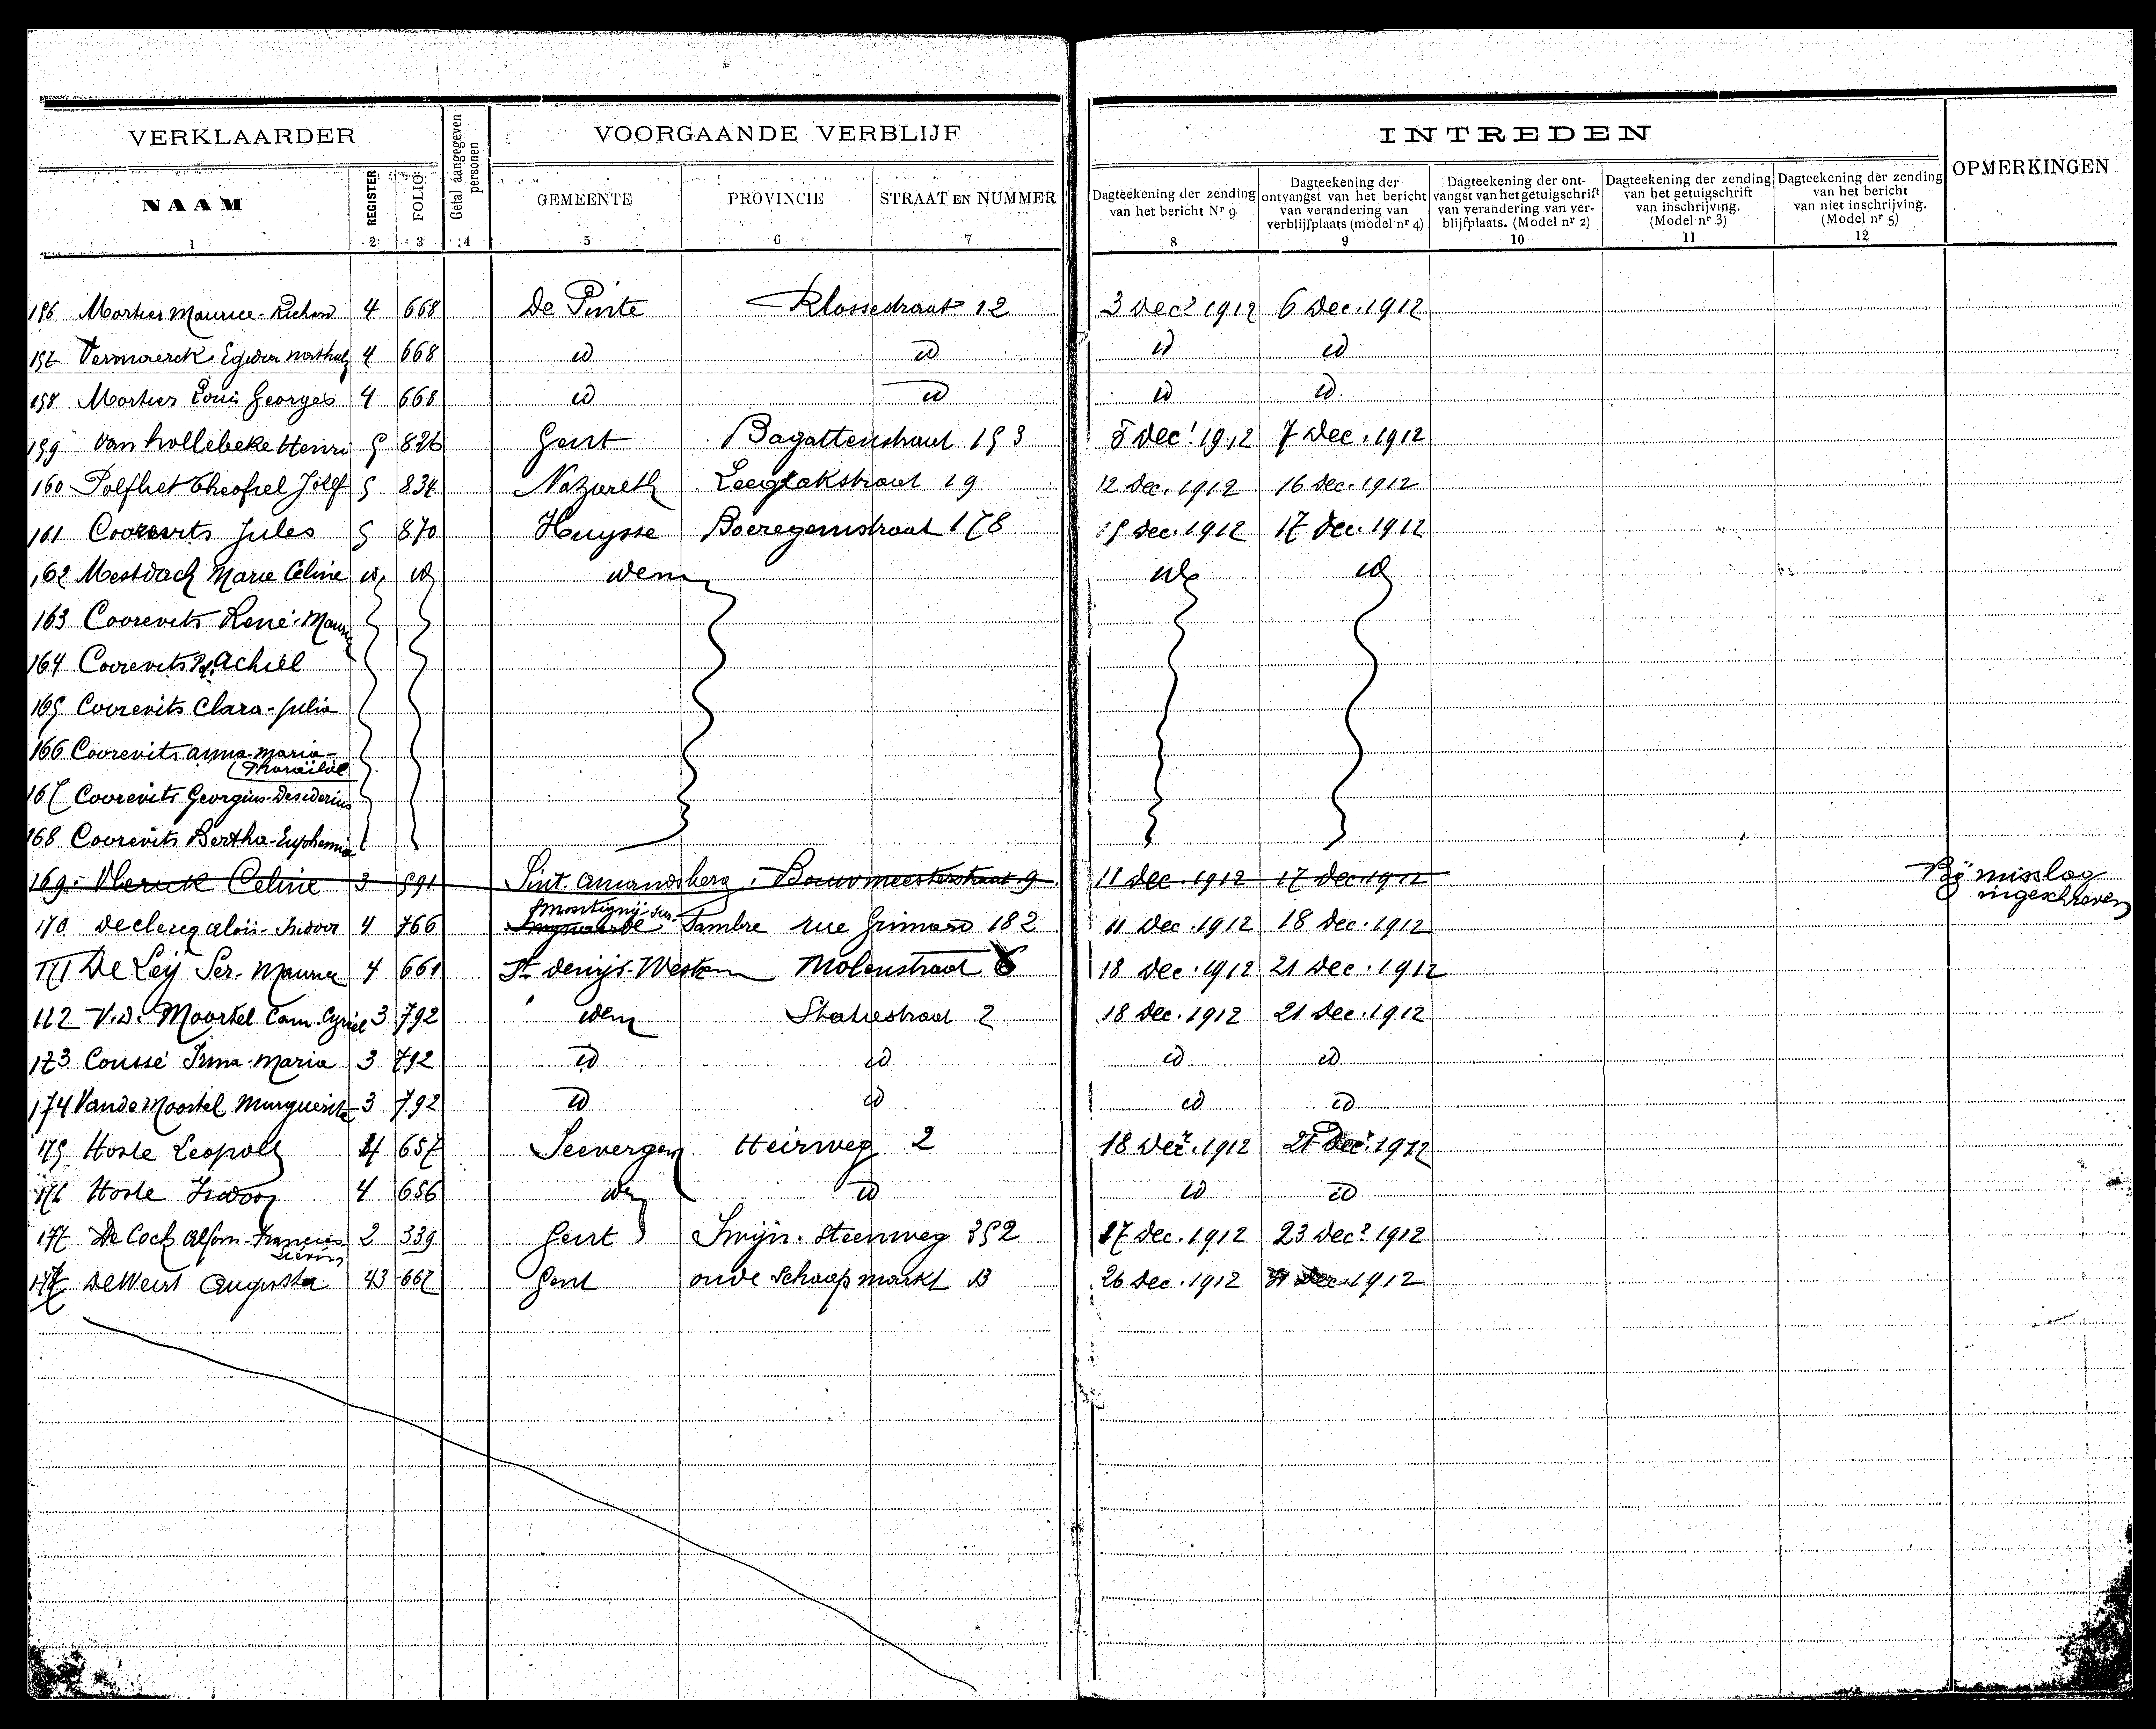 VERKLAARDER
Getal aangegeven personen
VOORGAANDE VERBLIJF
INTREDEN
OPMERKINGEN
NAAM
REGISTER
FOLIO
GEMEENTE
PROVINCIE
STRAAT EN NUMMER
Dagteekening der zending van het bericht Nr 9
Dagteekening der ontvangst van het bericht van verandering van verblijfplaats (model nr 4)
Dagteekening der ontvangst van het getuigschrift van verandering van verblijfplaats. (Model nr 2)
Dagteekening der zending van het getuigschrift van inschrijving. (Model nr 3)
Dagteekening der zending van het bericht van niet inschrijving. (Model nr 5)
1 2 3 4 5 6 7 8 9 10 11 12
156 Mortier Maurice-Richard 4 668 De Pinte Klossestraat 12 3 Decr 1912 6 Dec. 1912
157 Vermaerck Egidia 4 668 id id id id
158 Mortier Louis Georges 4 668 id id id id
159 Van hollebeke Henri 5 826 Gent Bagattenstraat 153 5 Dec. 1912 7 Dec. 1912
160 Polfliet Theofiel 5 834 Nazareth 19 12 Dec. 1912 16 Dec. 1912
161 Coorevits Jules 5 870 Huysse Boeregemstraat 178 15 Dec. 1912 17 Dec. 1912
162 Mestdach Marie Celine id id idem id id
163 Coorevits René-Maurice
164 Coorevits Achiel
165 Coorevits Clara-Julia
166 Coorevits Anna-Maria-
167 Coorevits Georgius-Desiderius
168 Coorevits Bertha-Euphemia
169. Vlerick Celine 3 591 Sint. Amandsberg. Bouwmeesterstraat 9 11 Dec. 1912 17 Dec 1912 Bij misslag
ingeschreven
Montigny-sur-
170 Declercq Aloïs-Isidoor 4 766 Swynaerde Sambre rue Grimard 182 11 Dec. 1912 18 Dec. 1912
171 De Leij Ser-Maurice 4 661 St Denijs-Westrem Molenstraat 18 Dec. 1912 21 Dec. 1912
172 V.d. Moortel Cam. Cyriel 3 792 idem Statiestraat 2 18 Dec. 1912 21 Dec. 1912
173 Coussé Irma-Maria 3 792 id id id id
174 Vande Moortel Marguerite 3 792 id id id id
175 Hoste Leopold 4 657 Seevergem Heirweg 2 18 Decr. 1912 21 Decr. 1912
176 Hoste Isidoor 4 656 id id id id
177 De Cock Alfons-Francies 2 339 Gent Swijn. Steenweg 352 17 Dec. 1912 23 Decr 1912
Lievin
178 De Weirt Augusta 43 667 Gent oude Schaapmarkt 13 26 Dec. 1912 Dec. 1912